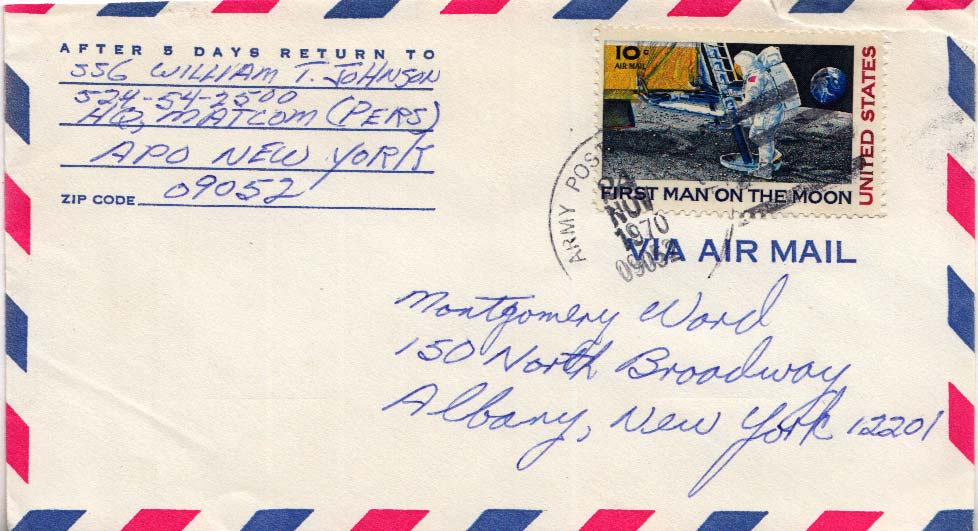 AFTER 5 DAYS RETURN TO
SSG WILLIAM T. JOHNSON
524-54-2500
HQ, MATCOM (PERS)
APO NEW YORK
ZIP CODE 09052
10c
AIR MAIL
UNITED STATES
FIRST MAN ON THE MOON
ARMY POST
NOV
1970
09052
VIA AIR MAIL
Montgomery Ward
150 North Broadway
Albany, New York 12201